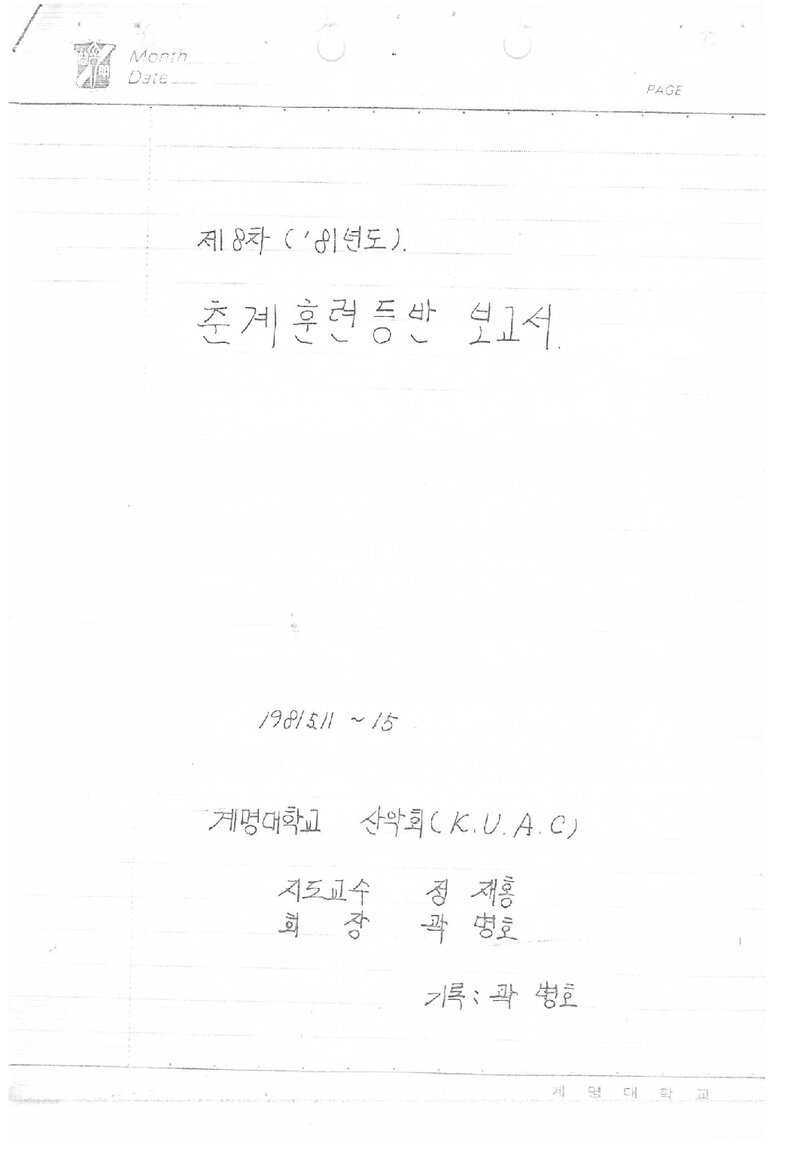 Month
Date
PAGE
제8차 ('81년도).
춘계훈련등반 보고서.
1981 5.11 ~ 15
계명대학교 산악회 (K.U.A.C)
지도교수 정재홍
회 장 곽명호
기록 : 곽명호
계명대학교